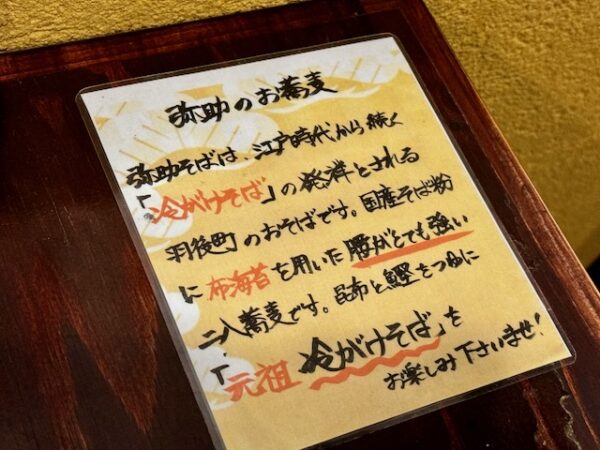 弥助のお蕎麦
弥助そばは、江戸時代から続く
「冷がけそば」の発祥とされる
羽後町のおそばです。国産そば粉
に布海苔を用いた腰がとても強い
二八蕎麦です。昆布と鰹をつゆに
「元祖 冷がけそば」を
お楽しみ下さいませ!